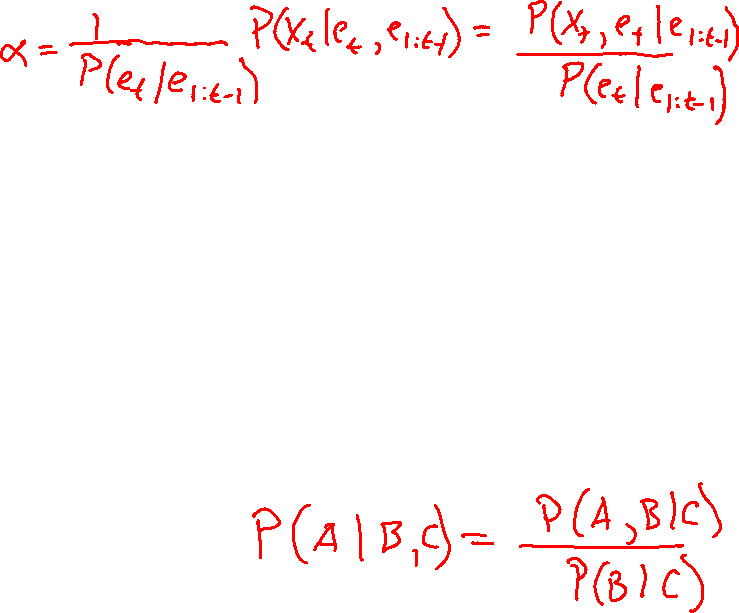 α = 1 / P(e_t | e_{1:t-1})   P(X_t | e_t, e_{1:t-1}) = P(X_t, e_t | e_{1:t-1}) / P(e_t | e_{1:t-1})
P(A | B, C) = P(A, B | C) / P(B | C)